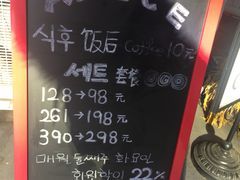 식후 饭后 Coffee 10元
세트 套餐
128→98元
261→198元
390→298元
매월 둘째주 화요일
회원할인 22%